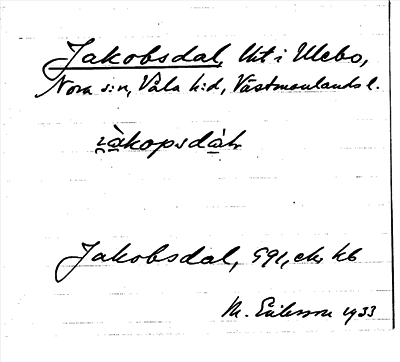 Jakobsdal, lht i Ulebo,
Nora s:n, Våla h:d, Västmanlands l.
jàkopsdàl
Jakobsdal, GGl, ek, kb
M. Eriksson 1933